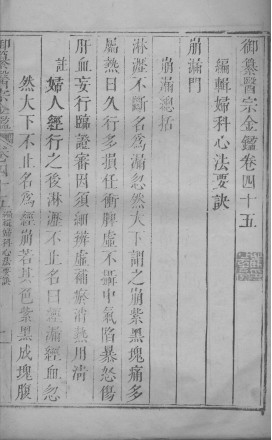 御纂醫宗金鑑卷四十五
編輯婦科心法要訣
崩漏門
崩漏總括
淋瀝不斷名為漏忽然大下謂之崩紫黑塊痛多
屬熱日久行多損任衝脾虛不攝中氣陷暴怒傷
肝血妄行臨證審因須細辨虛補瘀消熱用清
註婦人經行之後淋瀝不止名曰經漏經血忽
然大下不止名為經崩若其色紫黑成塊腹
御纂醫宗金鑑 卷四十五 編輯婦科心法要訣 一